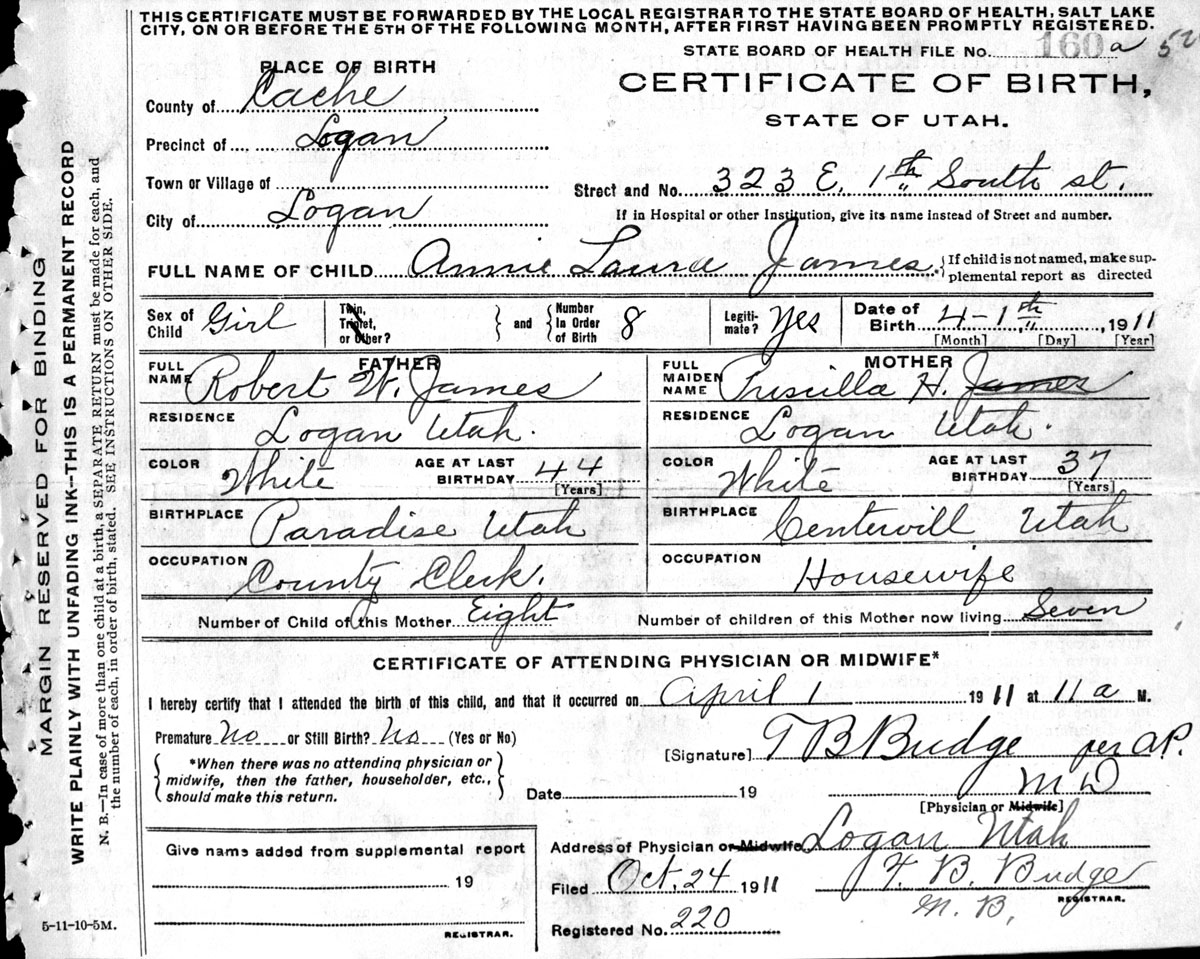 THIS CERTIFICATE MUST BE FORWARDED BY THE LOCAL REGISTRAR TO THE STATE BOARD OF HEALTH, SALT LAKE
CITY, ON OR BEFORE THE 5TH OF THE FOLLOWING MONTH, AFTER FIRST HAVING BEEN PROMPTLY REGISTERED.
STATE BOARD OF HEALTH FILE NO. 160 a 52
PLACE OF BIRTH
CERTIFICATE OF BIRTH,
STATE OF UTAH.
County of Cache
Precinct of Logan
Town or Village of
Street and No. 323 E. 1th South st.
City of Logan
If in Hospital or other Institution, give its name instead of Street and number.
FULL NAME OF CHILD Annie Laura James
If child is not named, make sup-
plemental report as directed
Sex of Child Girl
Twin, Triplet, or Other?
and
Number In Order of Birth 8
Legiti-mate? Yes
Date of Birth 4-1th, 1911
[Month] [Day] [Year]
FATHER
FULL NAME Robert W. James
RESIDENCE Logan Utah.
COLOR White AGE AT LAST BIRTHDAY 44 [Years]
BIRTHPLACE Paradise Utah
OCCUPATION County Clerk.
MOTHER
FULL MAIDEN NAME Priscilla H. James
RESIDENCE Logan Utah.
COLOR White AGE AT LAST BIRTHDAY 37 [Years]
BIRTHPLACE Centervill Utah
OCCUPATION Housewife
Number of Child of this Mother Eight Number of children of this Mother now living Seven
CERTIFICATE OF ATTENDING PHYSICIAN OR MIDWIFE*
I hereby certify that I attended the birth of this child, and that it occurred on April 1 1911 at 11 a M.
Premature No or Still Birth? No (Yes or No)
[Signature] T B Budge per A.P.
*When there was no attending physician or
midwife, then the father, householder, etc.,
should make this return.
M D
Date 19
[Physician or Midwife]
Address of Physician or Midwife Logan Utah
Give name added from supplemental report
19
REGISTRAR.
Filed Oct, 24 1911 T. B. Budge
M. B,
REGISTRAR.
Registered No. 220
5-11-10-5M.
MARGIN RESERVED FOR BINDING
WRITE PLAINLY WITH UNFADING INK--THIS IS A PERMANENT RECORD
N. B.—In case of more than one child at a birth, a SEPARATE RETURN must be made for each, and
the number of each, in order of birth, stated. SEE INSTRUCTIONS ON OTHER SIDE.